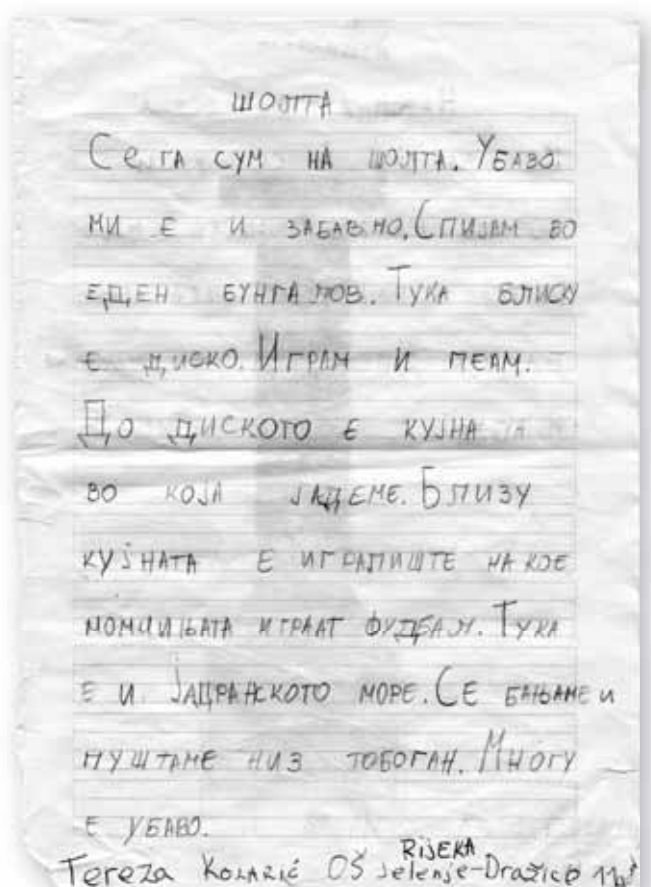 ШОЛТА
СЕ ГА СУМ НА ШОЛТА. УБАВО
МИ Е И ЗАБАВНО. СПИЈАМ ВО
ЕДЕН БУНГАЛОВ. ТУКА БЛИСКУ
Е ДИСКО. ИГРАМ И ПЕАМ.
ДО ДИСКОТО Е КУЈНА
ВО КОЈА ЈАДЕМЕ. БЛИЗУ
КУЈНАТА Е ИГРАЛИШТЕ НА КОЕ
МОМЧИЊАТА ИГРААТ ФУДБАЛ. ТУКА
Е И ЈАДРАНСКОТО МОРЕ. СЕ БАЊАМЕ И
ПУШТАМЕ НИЗ ТОБОГАН. МНОГУ
Е УБАВО.
RIJEKA
Tereza OŠ Jelenje-Dražice